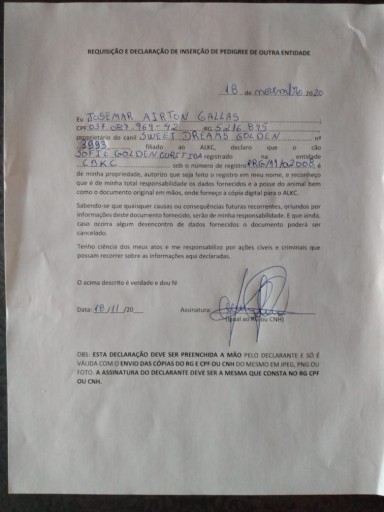 REQUISIÇÃO E DECLARAÇÃO DE INSERÇÃO DE PEDIGREE DE OUTRA ENTIDADE
18 de novembro 2020
Eu JOSEMAR AIRTON GALLAS
CPF 037.087.969-42 RG 5216895
proprietário do canil SWEET DREAMS GOLDEN nº
3993 filiado ao ALKC, declaro que o cão
SOFIE GOLDEN CURITIBA registrado na entidade
CBKC sob o número de registro é
de minha propriedade, autorizo que seja feito o registro em meu nome, e reconheço
que é de minha total responsabilidade os dados fornecidos e a posse do animal bem
como o documento original em mãos, onde forneço a cópia digital para o ALKC.
Sabendo-se que quaisquer causas ou consequências futuras recorrentes, oriundos por
informações deste documento fornecido, serão de minha responsabilidade. E que ainda,
caso ocorra algum desencontro de dados fornecidos o documento poderá ser
cancelado.
Tenho ciência dos meus atos e me responsabilizo por ações cíveis e criminais que
possam recorrer sobre as informações aqui declaradas.
O acima descrito é verdade e dou fé
Data: 18/11/20 Assinatura:
(Igual ao RG ou CNH)
OBS: ESTA DECLARAÇÃO DEVE SER PREENCHIDA A MÃO PELO DECLARANTE E SÓ É
VÁLIDA COM O ENVIO DAS CÓPIAS DO RG E CPF OU CNH DO MESMO EM JPEG, PNG OU
FOTO. A ASSINATURA DO DECLARANTE DEVE SER A MESMA QUE CONSTA NO RG CPF
OU CNH.